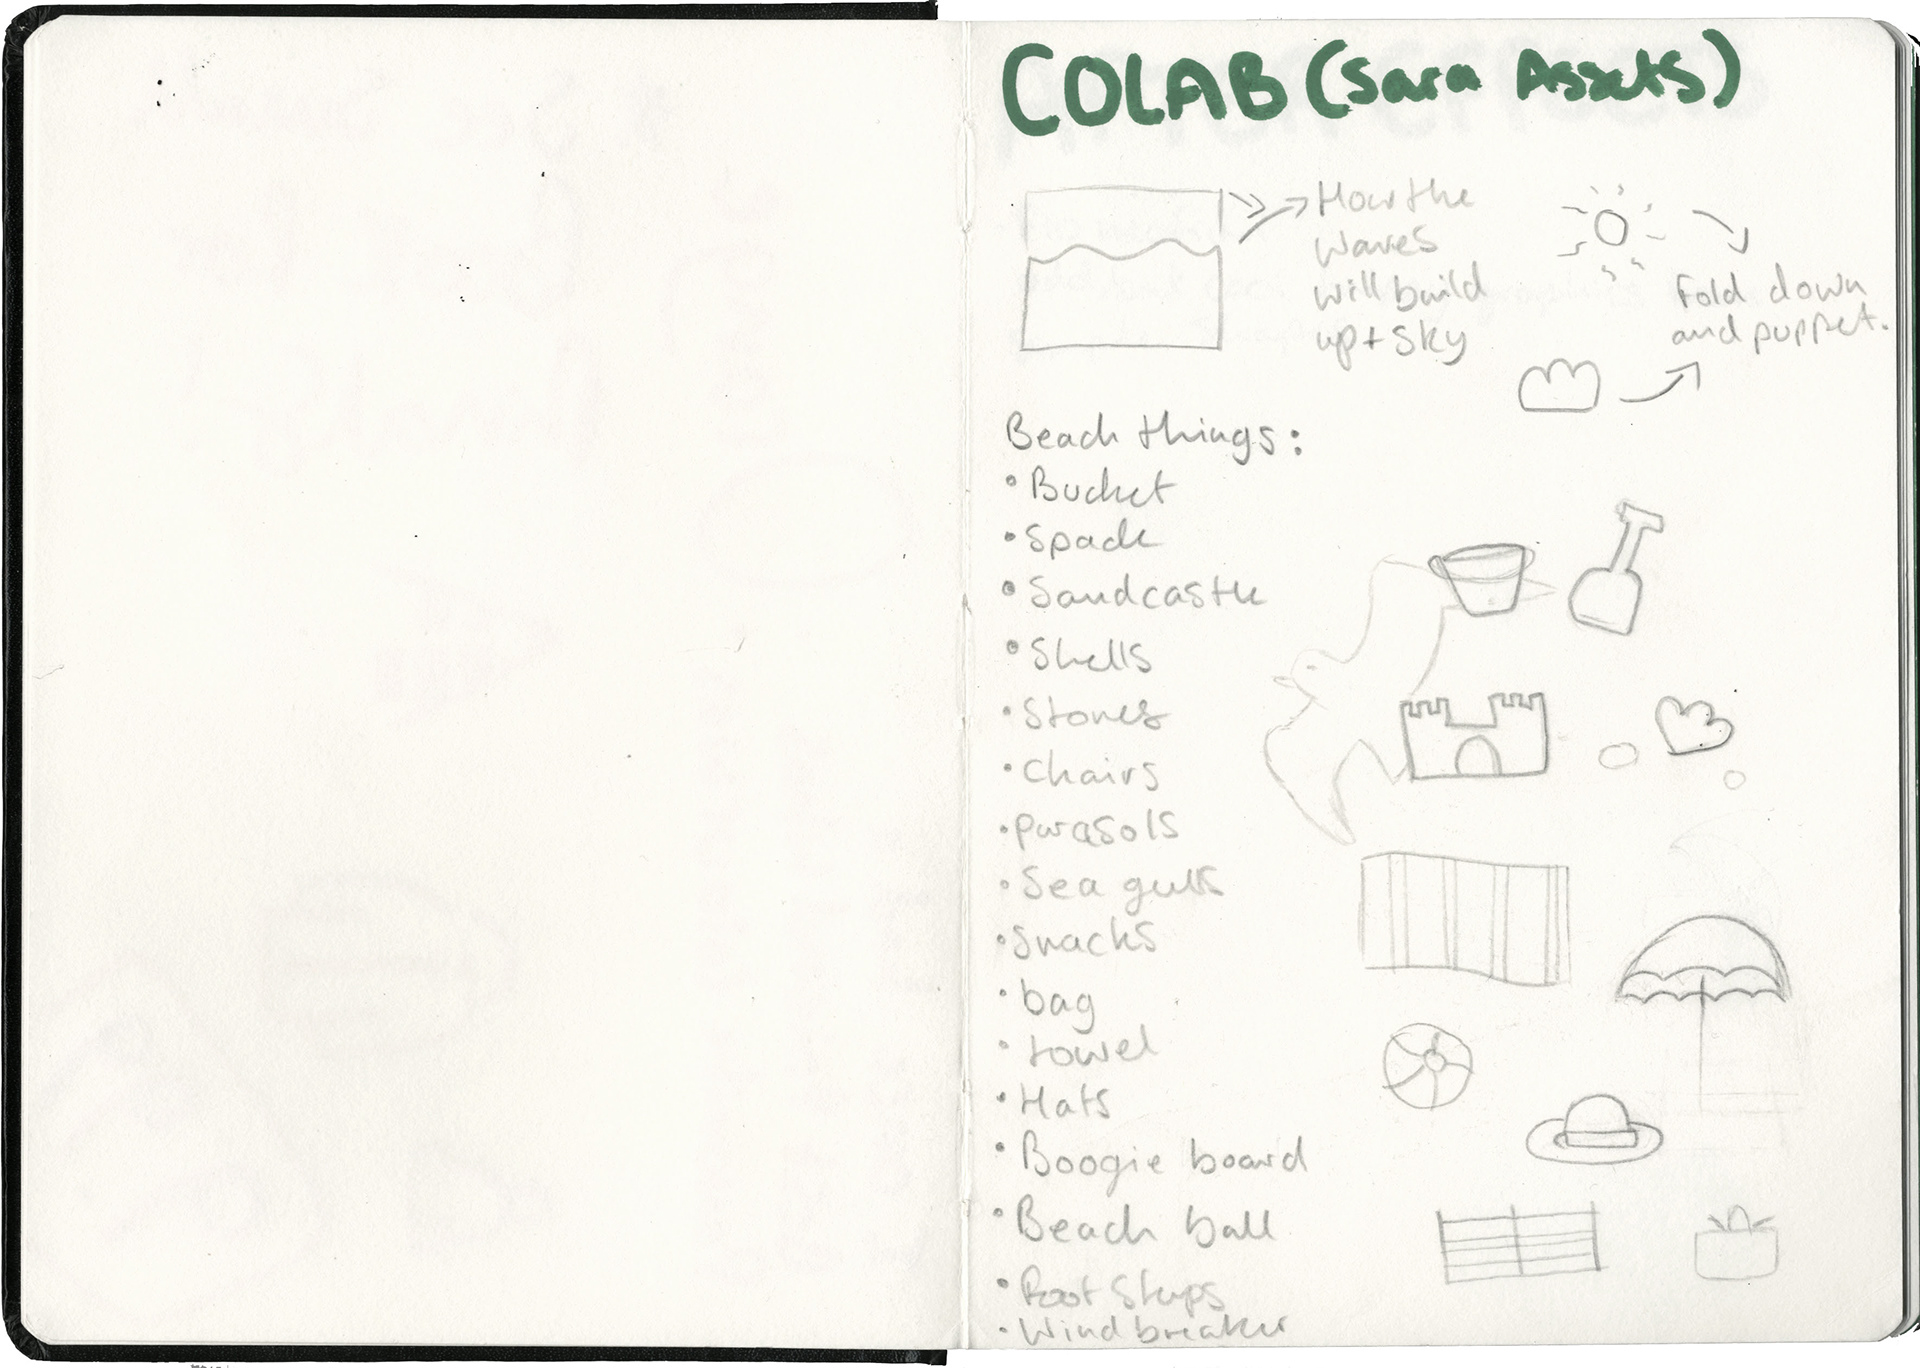 COLAB (Sara Assets)
How the
waves
will build
up + sky
Fold down
and puppet.
Beach things:
• Bucket
• Spade
• Sandcastle
• Shells
• Stones
• Chairs
• parasols
• Sea gulls
• snacks
• bag
• towel
• Hats
• Boogie board
• Beach ball
• Foot Steps
• Wind breaker